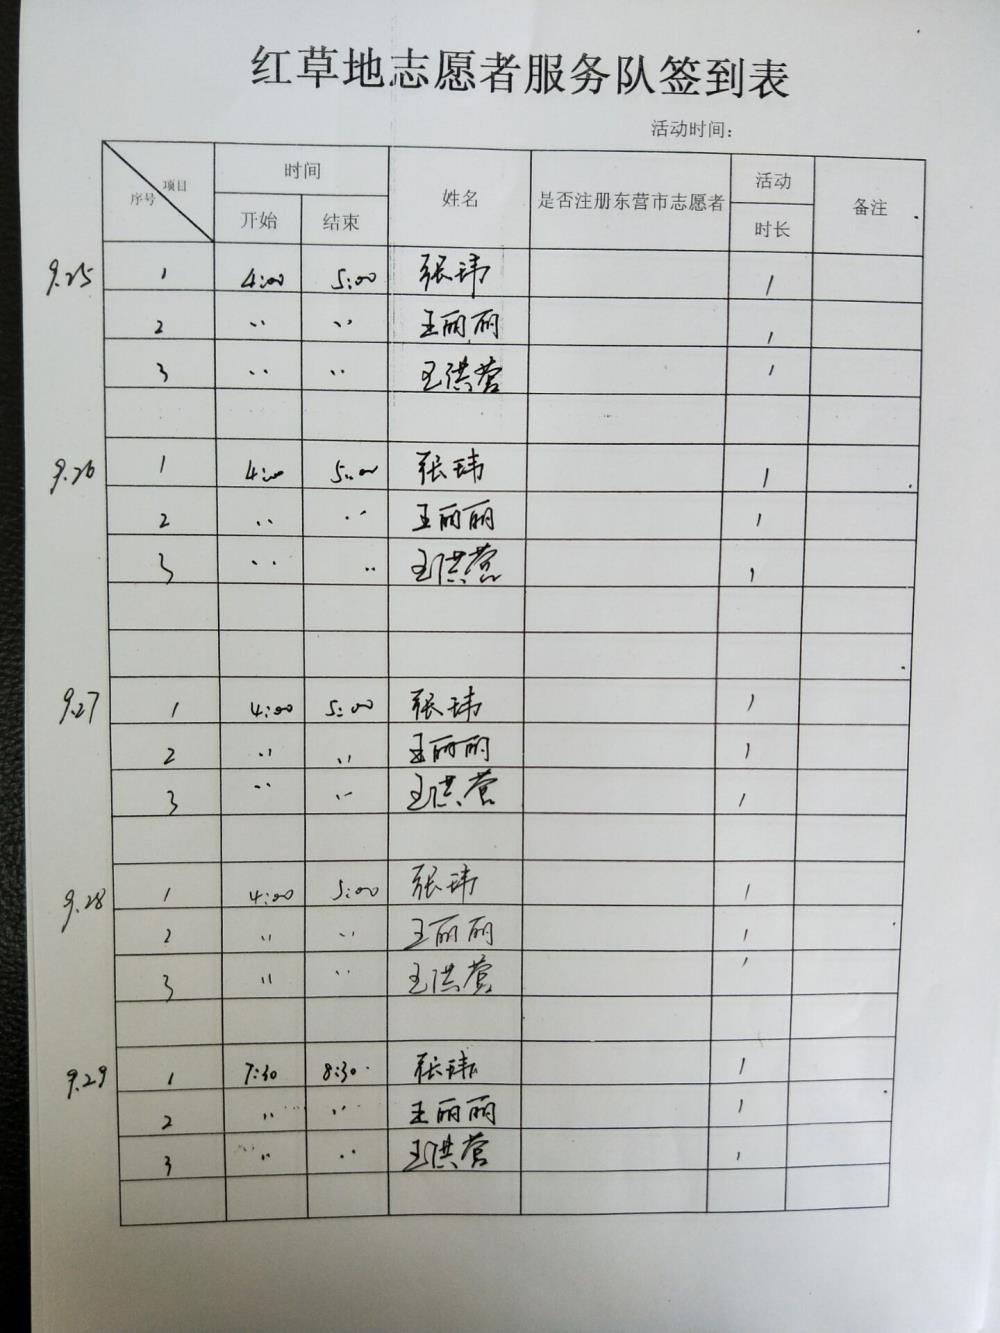 红草地志愿者服务队签到表
活动时间：
项目 序号 时间 姓名 是否注册东营市志愿者 活动 备注
开始 结束 时长
9.25 1 4:00 5:00 张玮 1
2 〃 〃 王丽丽 1
3 〃 〃 王洪营 1
9.26 1 4:00 5:00 张玮 1
2 〃 〃 王丽丽 1
3 〃 〃 王洪营 1
9.27 1 4:00 5:00 张玮 1
2 〃 〃 王丽丽 1
3 〃 〃 王洪营 1
9.28 1 4:00 5:00 张玮 1
2 〃 〃 王丽丽 1
3 〃 〃 王洪营 1
9.29 1 7:30 8:30 张玮 1
2 〃 〃 王丽丽 1
3 〃 〃 王洪营 1